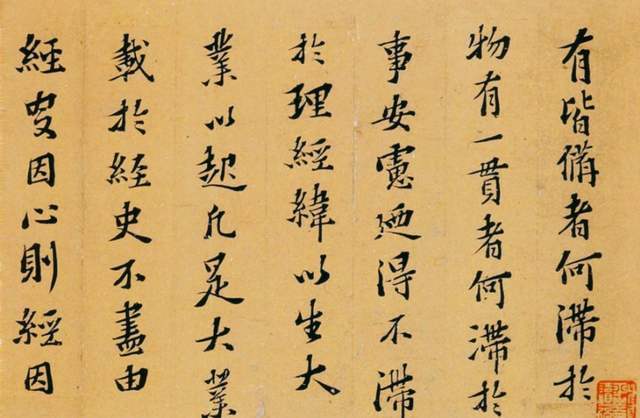 有皆備者何滯於
物有一貫者何滯於
事安慮廼得不滯
於理經緯以生大
業以起凡是大業
載於経史不盡由
經因心則經因